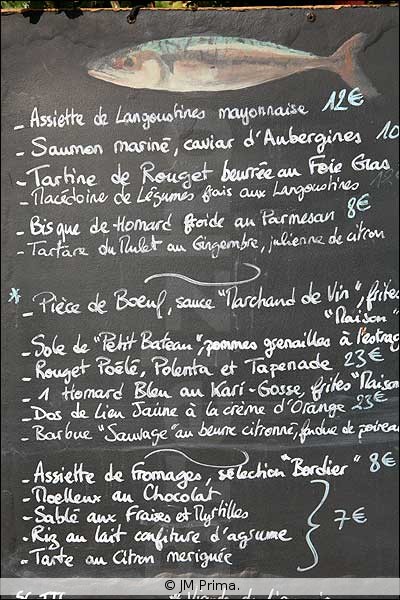 - Assiette de Langoustines mayonnaise 12€
- Saumon mariné, caviar d'Aubergines 10
- Tartine de Rouget beurrée au Foie Gras
- Macédoine de Légumes frais aux Langoustines 12€
- Bisque de Homard froide au Parmesan 8€
- Tartare du Mulet au Gingembre, julienne de citron
* - Pièce de Boeuf, sauce "Marchand de Vin", frites
"Maison"
- Sole de "Petit Bateau", pommes grenailles à l'estrag
- Rouget Poêlé, Polenta et Tapenade 23€
- 1 Homard Bleu au Kari-Gosse, frites "Maison
- Dos de Lieu Jaune à la crème d'Orange 23€
- Barbue "Sauvage" au beurre citronné, fondue de poireau
- Assiette de fromages, sélection "Bordier" 8€
- Moelleux au Chocolat
- Sablé aux Fraises et Myrtilles
- Riz au lait confiture d'agrume
7€
- Tarte au Citron meriguée
© JM Prima.